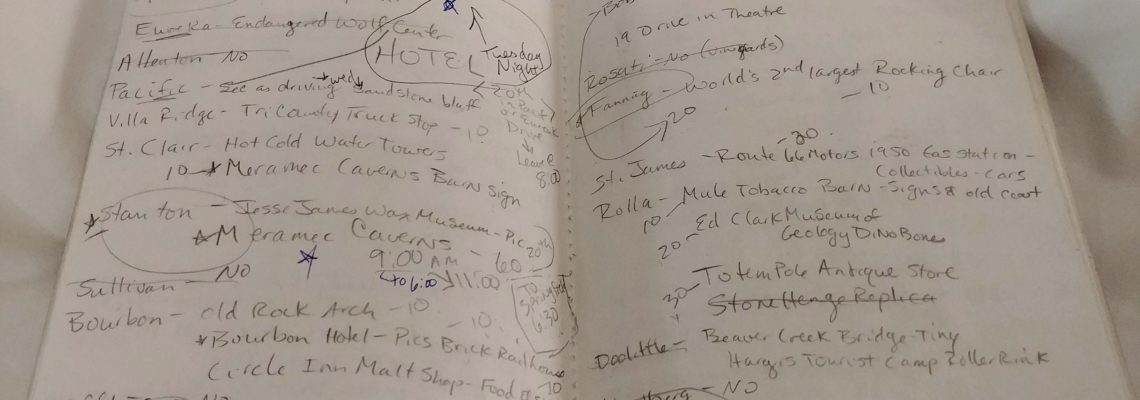 Eureka - Endangered Wolf Center
Allenton NO
HOTEL
Tuesday
Night
Pacific - See as driving → wed, Sandstone bluff
20th
in Pacific
or Eureka
Drive
Leave
8:00
Villa Ridge - Tri County Truck Stop - 10
St. Clair - Hot Cold Water Towers
10 → * Meramec Caverns Barn Sign
* Stanton - Jesse James Wax Museum - Pic
20th
* Meramec Caverns - 60
9:00 AM
to 6:00 → 11:00
Sullivan - NO
TO
Springfield
6:30
Bourbon - Old Rock Arch - 10
- 10
* Bourbon Hotel - Pics Brick Railhouse
Circle Inn Malt Shop - Food
10
NO
19 Drive in Theatre
Rosati - NO (vineyards)
Fanning - World's 2nd largest Rocking Chair
- 10
→ 20
- 30
St. James - Route 66 Motors 1950 Gas Station -
Collectibles - Cars
Rolla - Mule Tobacco Barn - Signs & old
10
Ed Clark Museum of
20
Geology Dino Bones
Totem Pole Antique Store
30
StoneHenge Replica
Doolittle - Beaver Creek Bridge - Tiny
Hargis Tourist Camp Roller Rink
NO